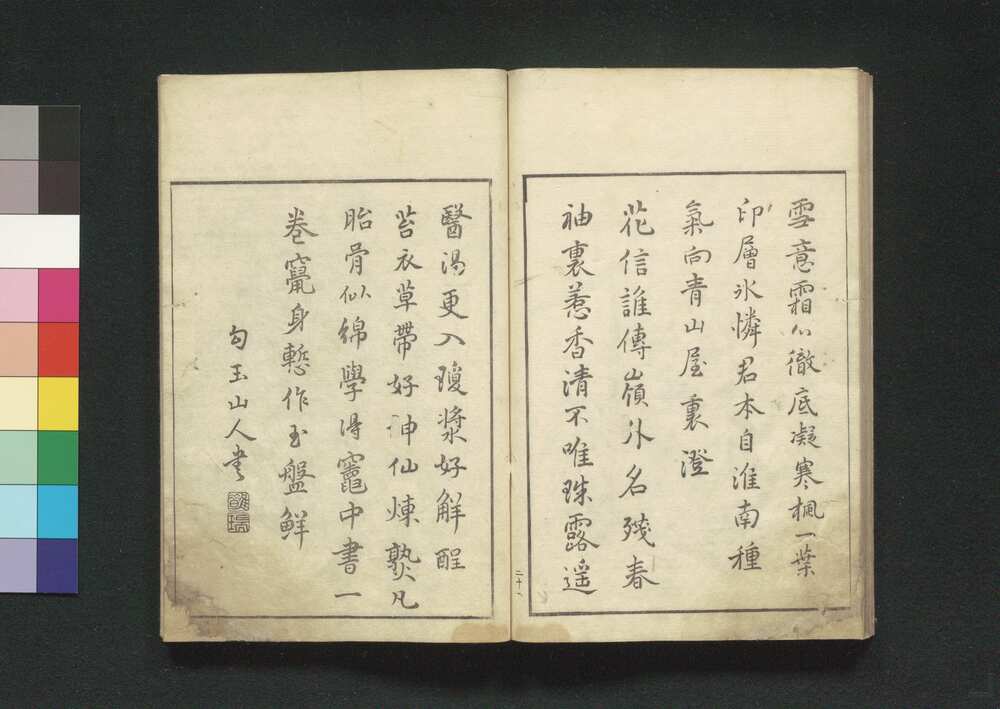 雪意霜心徹底凝寒楓一葉
印層氷憐君本自淮南種
氣向青山屋裏澄
花信誰傳嶺外名殘春
袖裏惹香清不唯珠露遥
醫渇更入瓊漿好解酲
苔衣草帶好神仙煉熟凡
胎骨似綿學得竈中書一
卷竄身慙作玉盤鮮
句玉山人書
二十八